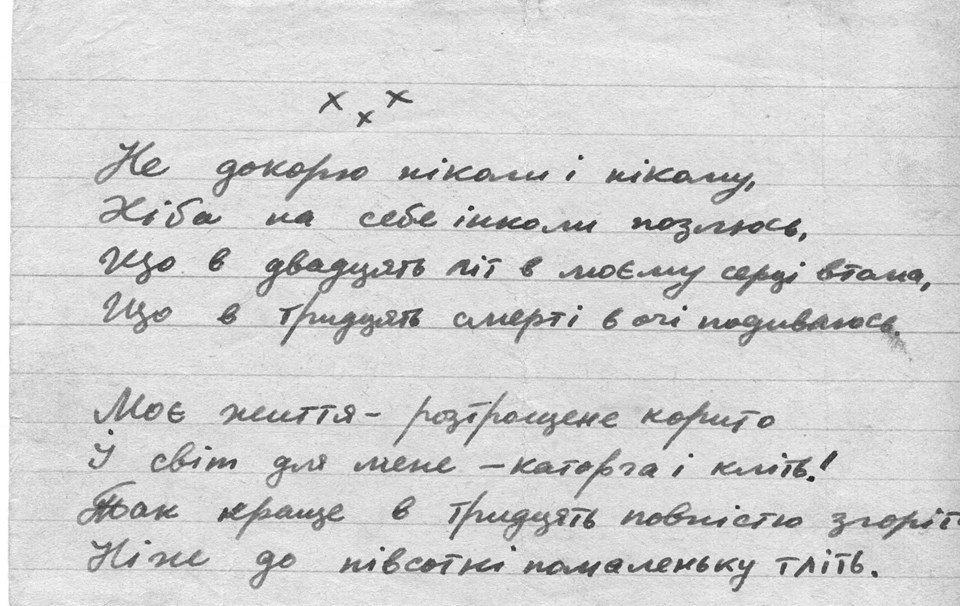 х х х
Не докорю ніколи і нікому,
Хіба на себе інколи позлюсь,
Що в двадцять літ в моєму серці втома,
Що в тридцять смерті в очі подивлюсь.
Моє життя - розтрощене корито
Й світ для мене - каторга і кліть!
Так краще в тридцять повністю згоріт
Ніж до півсотні помаленьку тліть.